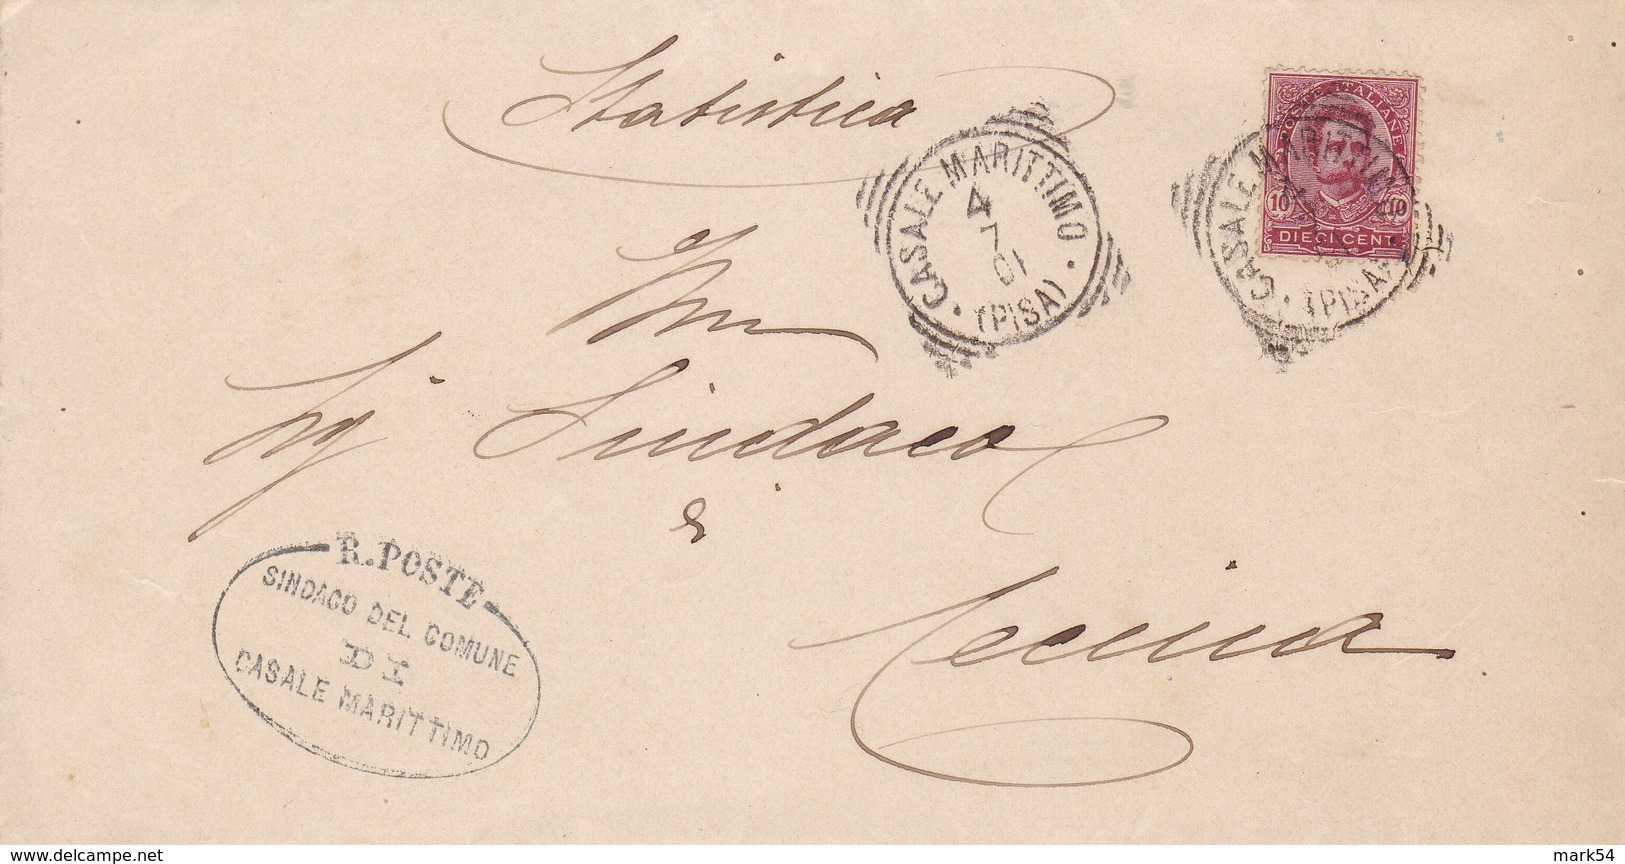 Statistica
POSTE ITALIANE
10 10
DIECI CENT
CASALE MARITTIMO
4
7
01
(PISA)
CASALE MARITTIMO
(PISA)
Sig Sindaco
di
Cecina
R. POSTE
SINDACO DEL COMUNE
DI
CASALE MARITTIMO
delcampe.net
mark54